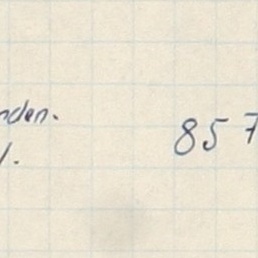 nden. 857